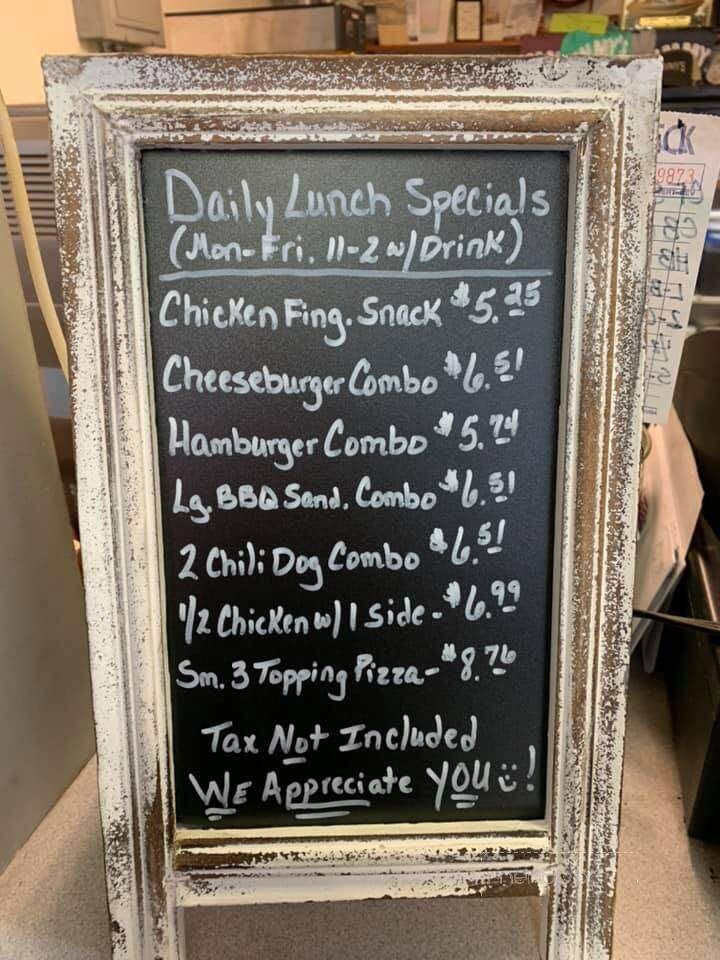 Daily Lunch Specials
(Mon-Fri. 11-2 w/Drink)
Chicken Fing. Snack $5.25
Cheeseburger Combo $6.51
Hamburger Combo $5.74
Lg. BBQ Sand. Combo $6.51
2 Chili Dog Combo $6.51
1/2 Chicken w/1 side - $6.99
Sm. 3 Topping Pizza - $8.76
Tax Not Included
WE Appreciate YOU!
CK
9873